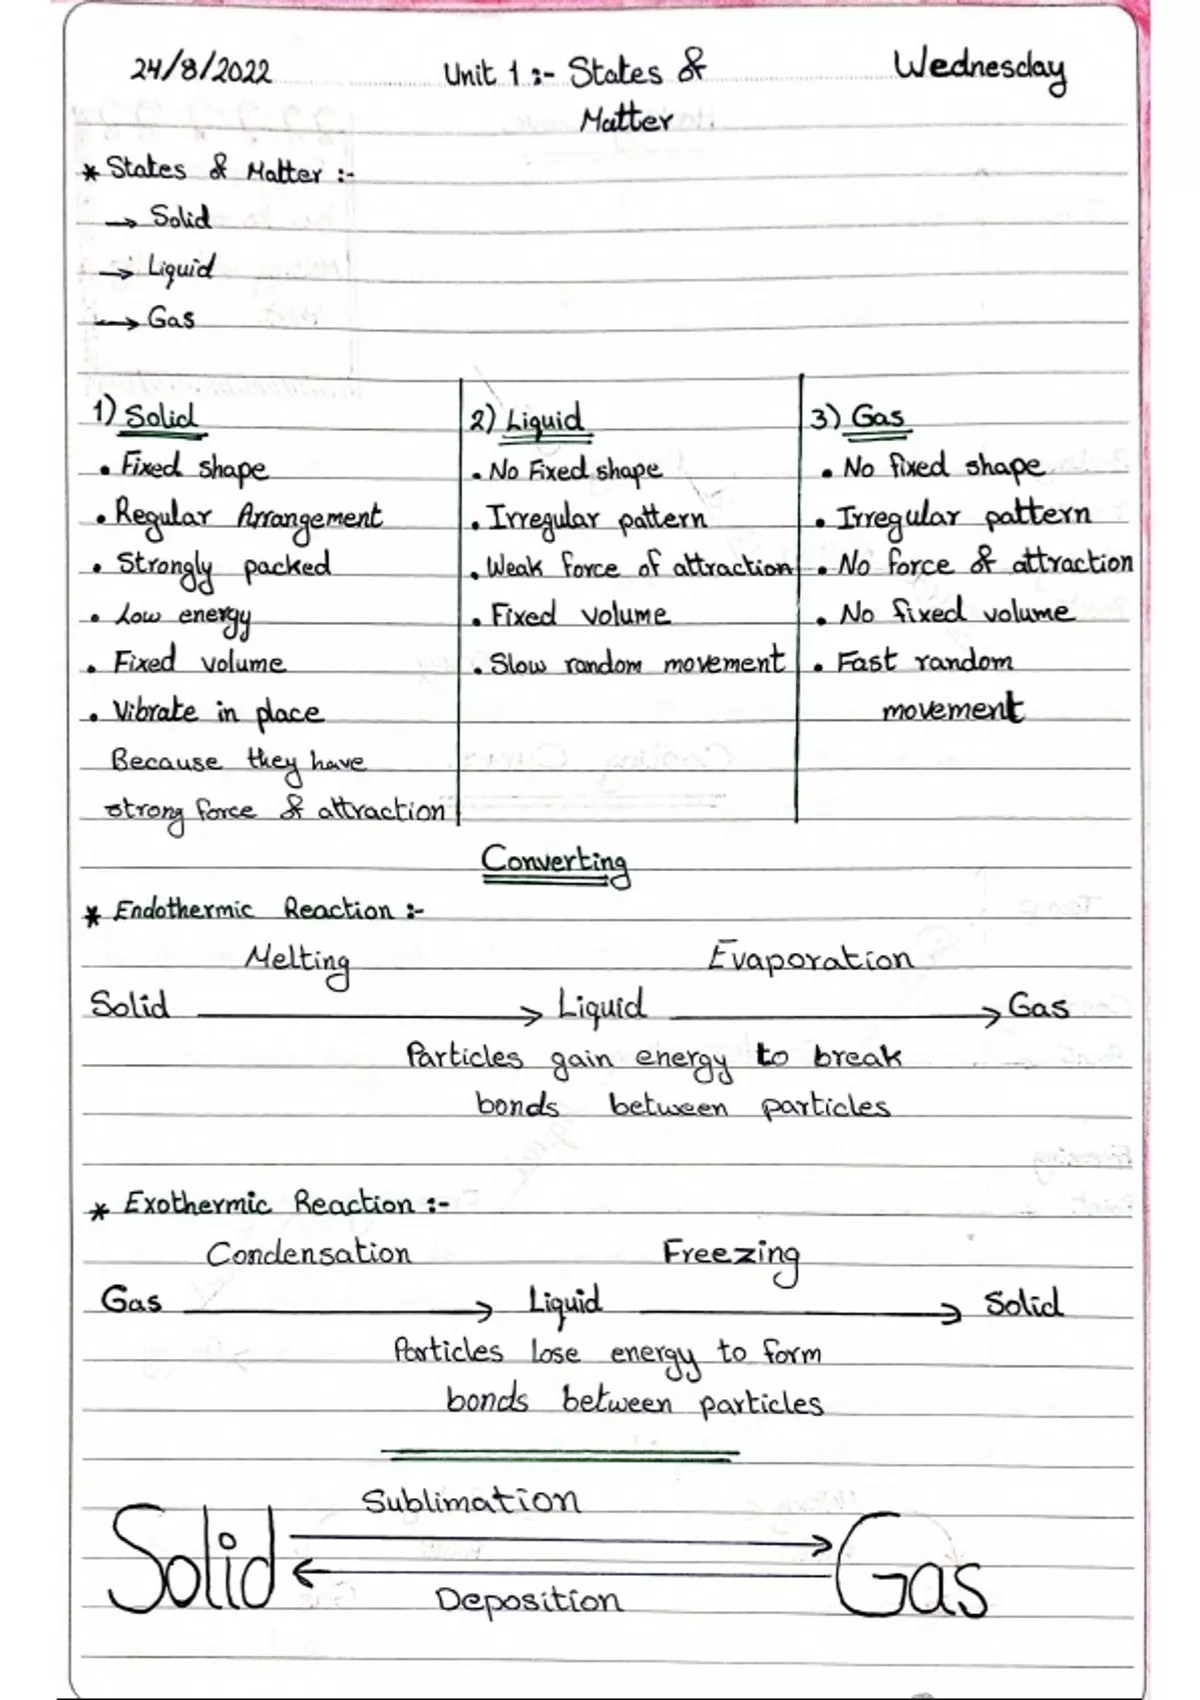 24/8/2022 Unit 1 :- States & Wednesday
Matter
* States & Matter :-
→ Solid
→ Liquid
→ Gas
1) Solid
• Fixed shape
• Regular Arrangement
• Strongly packed
• Low energy
• Fixed volume
• Vibrate in place
Because they have
strong force & attraction
2) Liquid
• No Fixed shape
• Irregular pattern
• Weak force of attraction
• Fixed volume
• Slow random movement
3) Gas
• No fixed shape
• Irregular pattern
• No force & attraction
• No fixed volume
• Fast random
movement
Converting
* Endothermic Reaction :-
Melting Evaporation
Solid → Liquid → Gas
Particles gain energy to break
bonds between particles
* Exothermic Reaction :-
Condensation Freezing
Gas → Liquid → Solid
Particles lose energy to form
bonds between particles
Sublimation
Solid Gas
Deposition